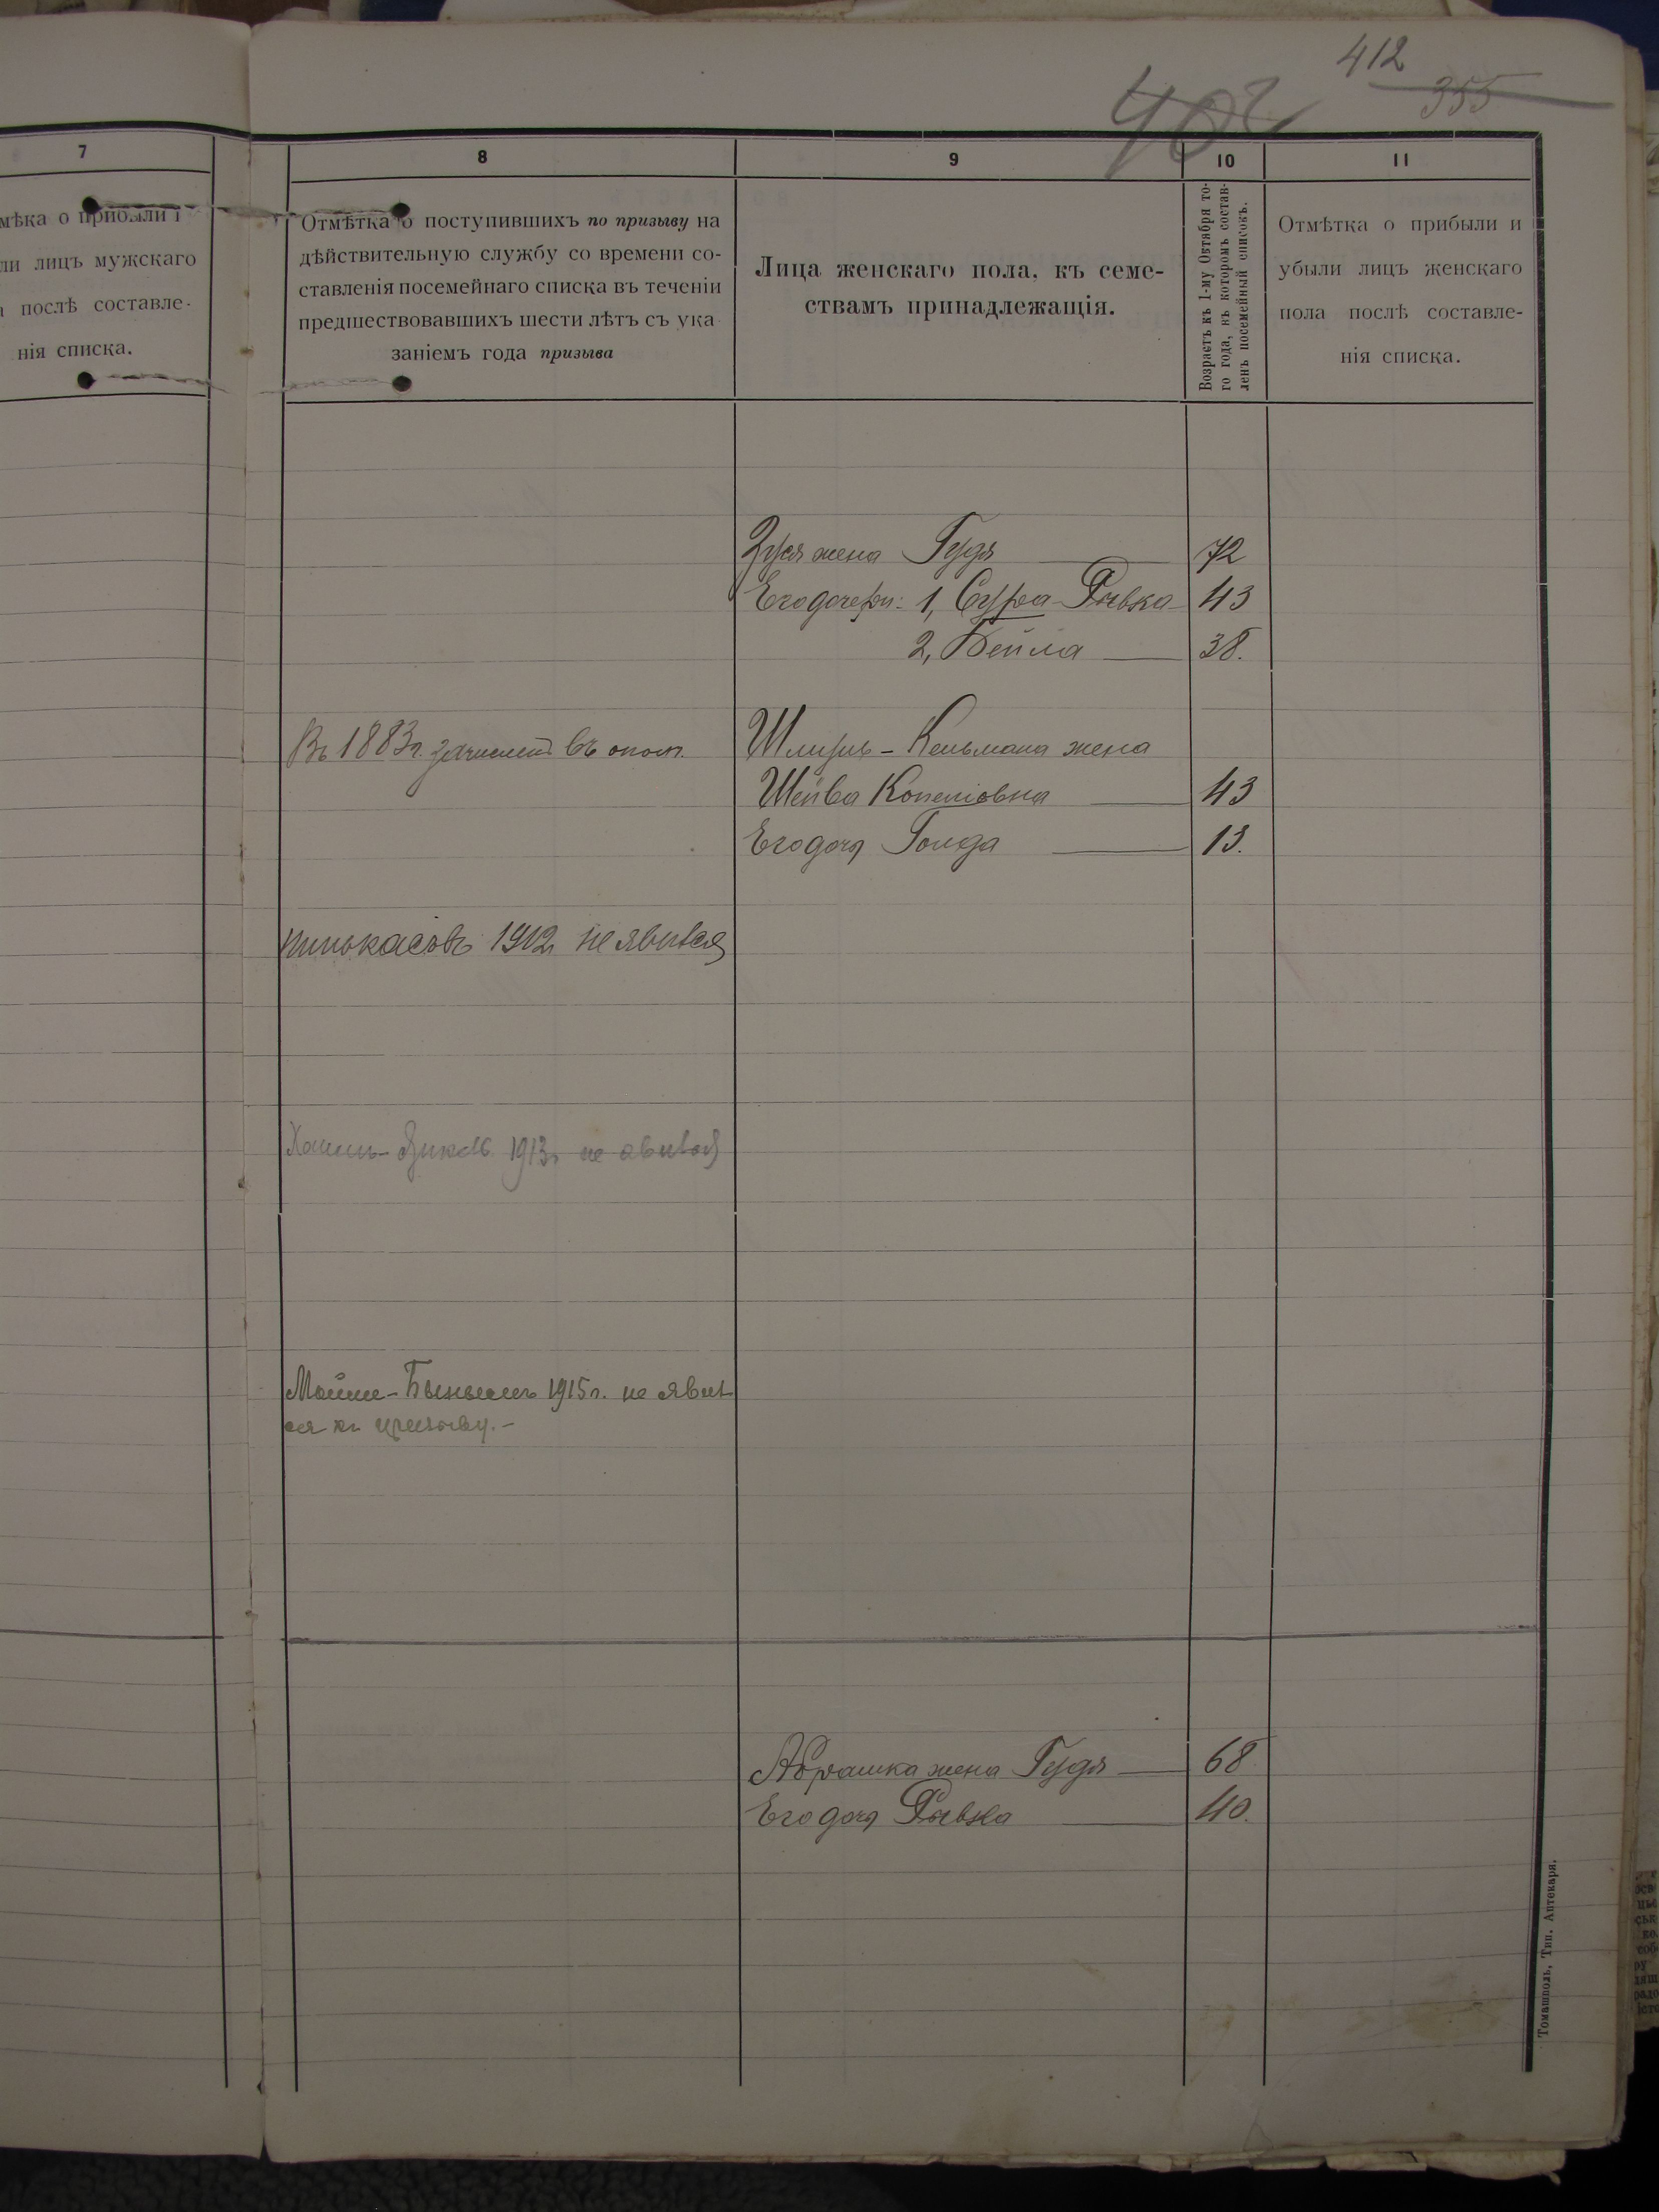 412
355
402
7
мѣка о прибыли і
ли лицъ мужскаго
послѣ составле-
нія списка.
8
Отмѣтка о поступившихъ по призыву на
дѣйствительную службу со времени со-
ставленія посемейнаго списка въ теченіи
предшествовавшихъ шести лѣтъ съ ука
заніемъ года призыва
9
Лица женскаго пола, къ семе-
ствамъ принадлежащія.
10
Возрастъ къ 1-му Октября то-
го года, въ которомъ состав-
ленъ посемейный списокъ.
11
Отмѣтка о прибыли и
убыли лицъ женскаго
пола послѣ составле-
нія списка.
Зуся жена Гудя 72
Его дочери: 1, Сура-Рывка 43
2, Бейла 38.
Въ 1883г. зачислен въ ополч.
Шмуль-Кельмана жена
Шейва Копелiовна 43
Его дочь Голда 13.
Пинькасовъ 1912г не явился
1913г не явился
Мойше-Беньменъ 1915г. не явил
ся къ призыву.-
Абрашка жена Гудя 68
Его дочь Рывка 40.
Томашполь, Тип. Аптекаря.